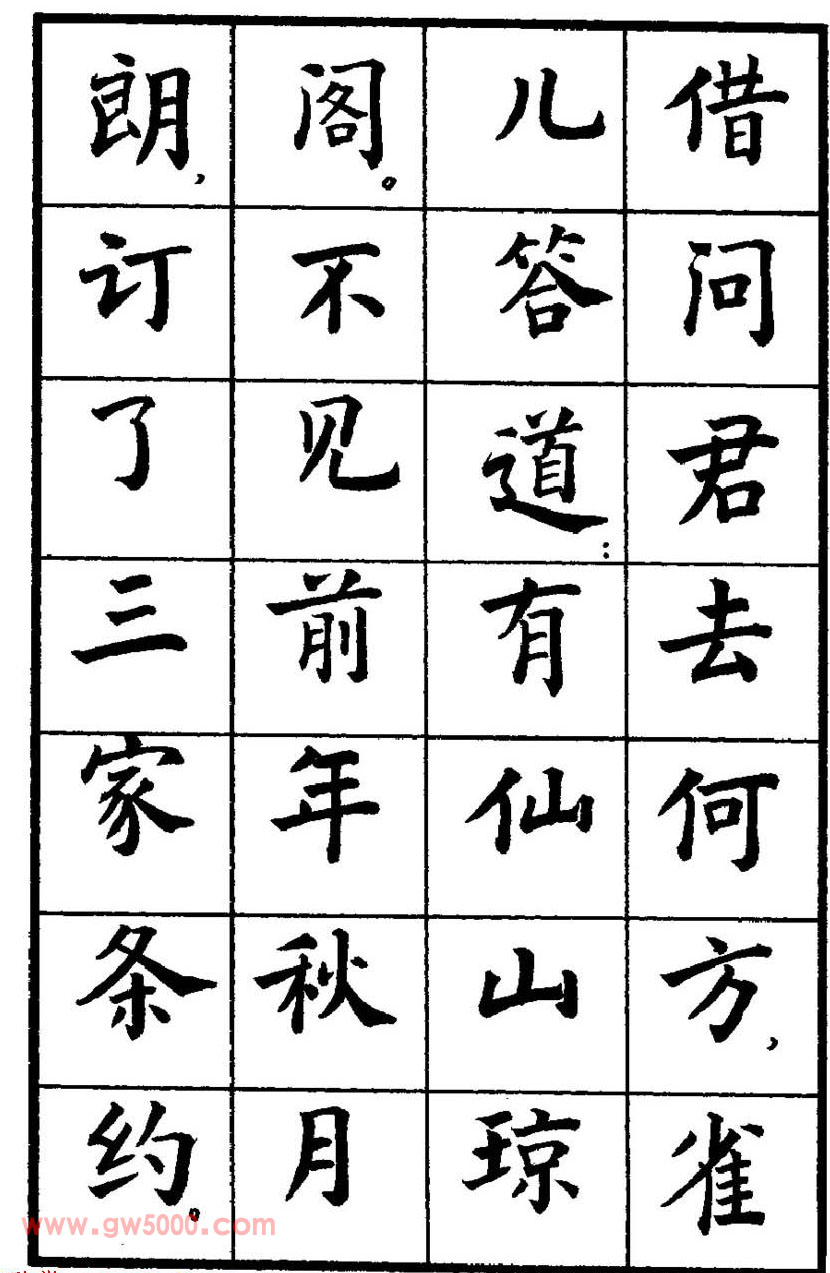 借问君去何方，雀
儿答道：有仙山琼
阁。不见前年秋月
朗，订了三家条约。
www.gw5000.com